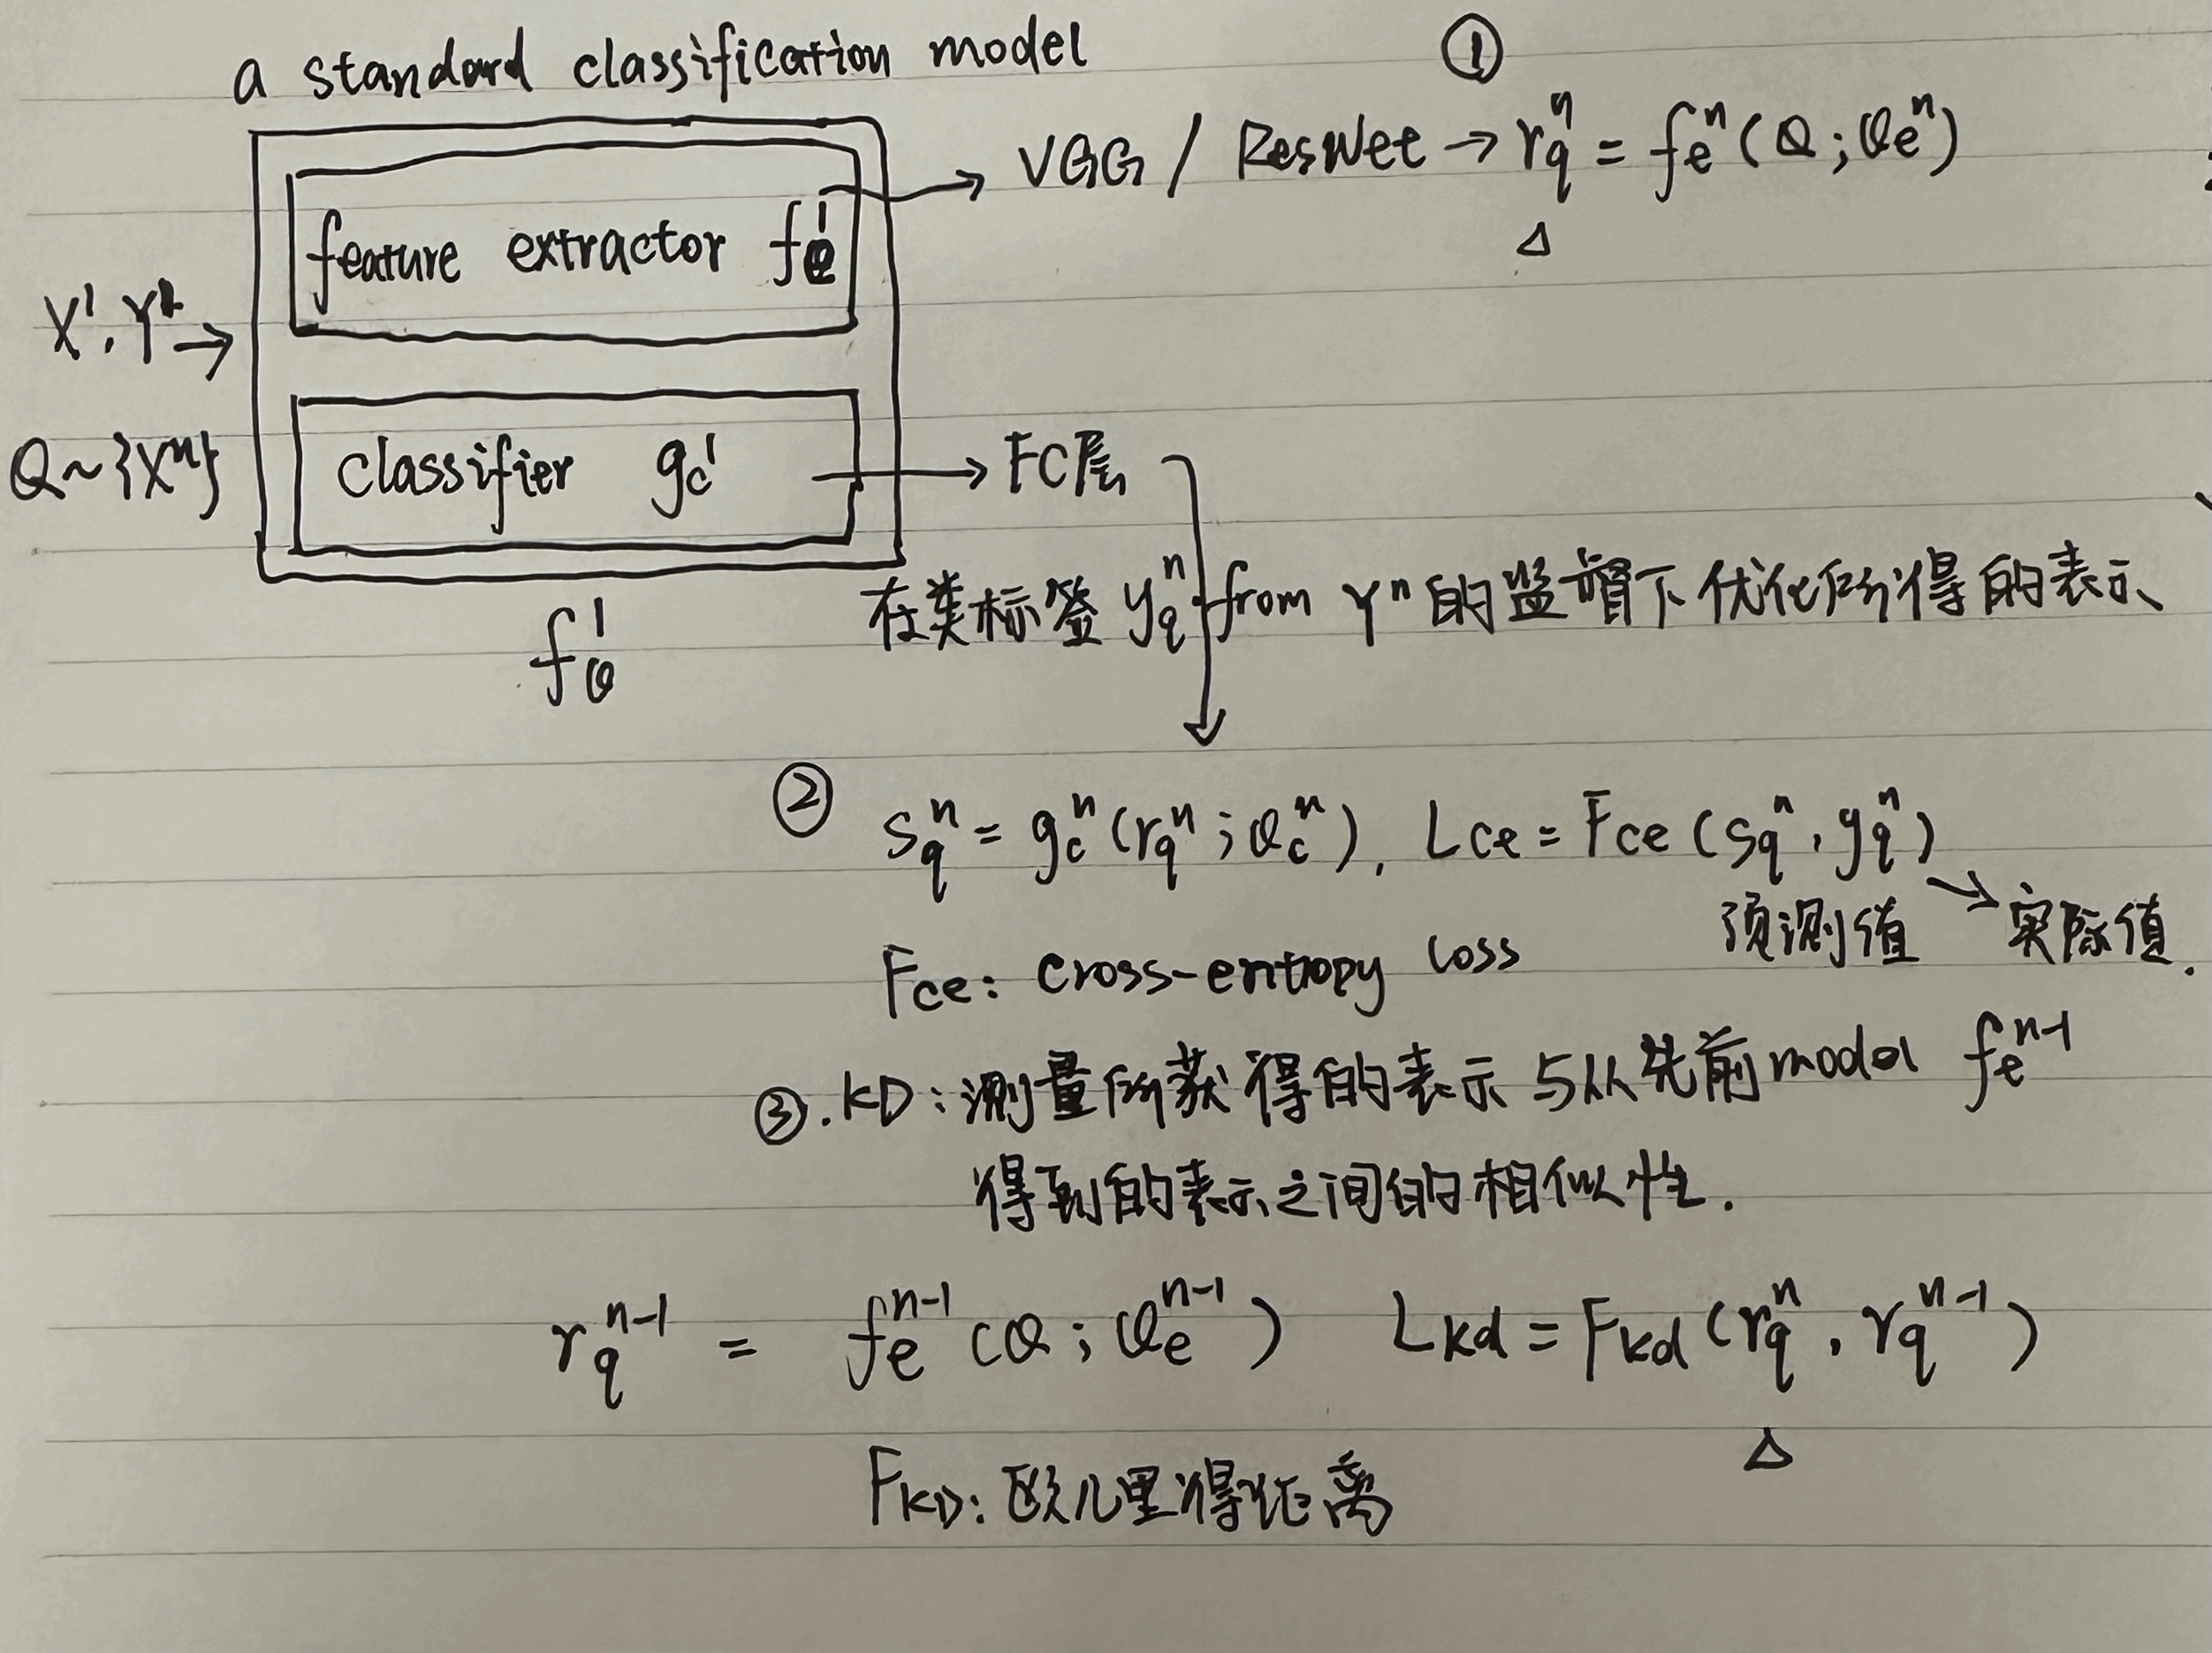 a standard classification model
①
VGG / ResNet → r_q^n = f_e^n (Q; θ_e^n)
Δ
feature extractor f_e^1
X^1, Y^1 →
Q~{X^n}
classifier g_c^1
FC层
f_θ^1
在类标签 y_q^n from Y^n 的监督下优化所得的表示
② s_q^n = g_c^n (r_q^n; θ_c^n), Lce = Fce (s_q^n, y_q^n)
预测值 → 实际值.
Fce: cross-entropy loss
③. KD: 测量所获得的表示与从先前model f_e^{n-1}
得到的表示之间的相似性.
r_q^{n-1} = f_e^{n-1} (Q; θ_e^{n-1}) Lkd = Fkd (r_q^n, r_q^{n-1})
Δ
FKD: 欧几里得距离